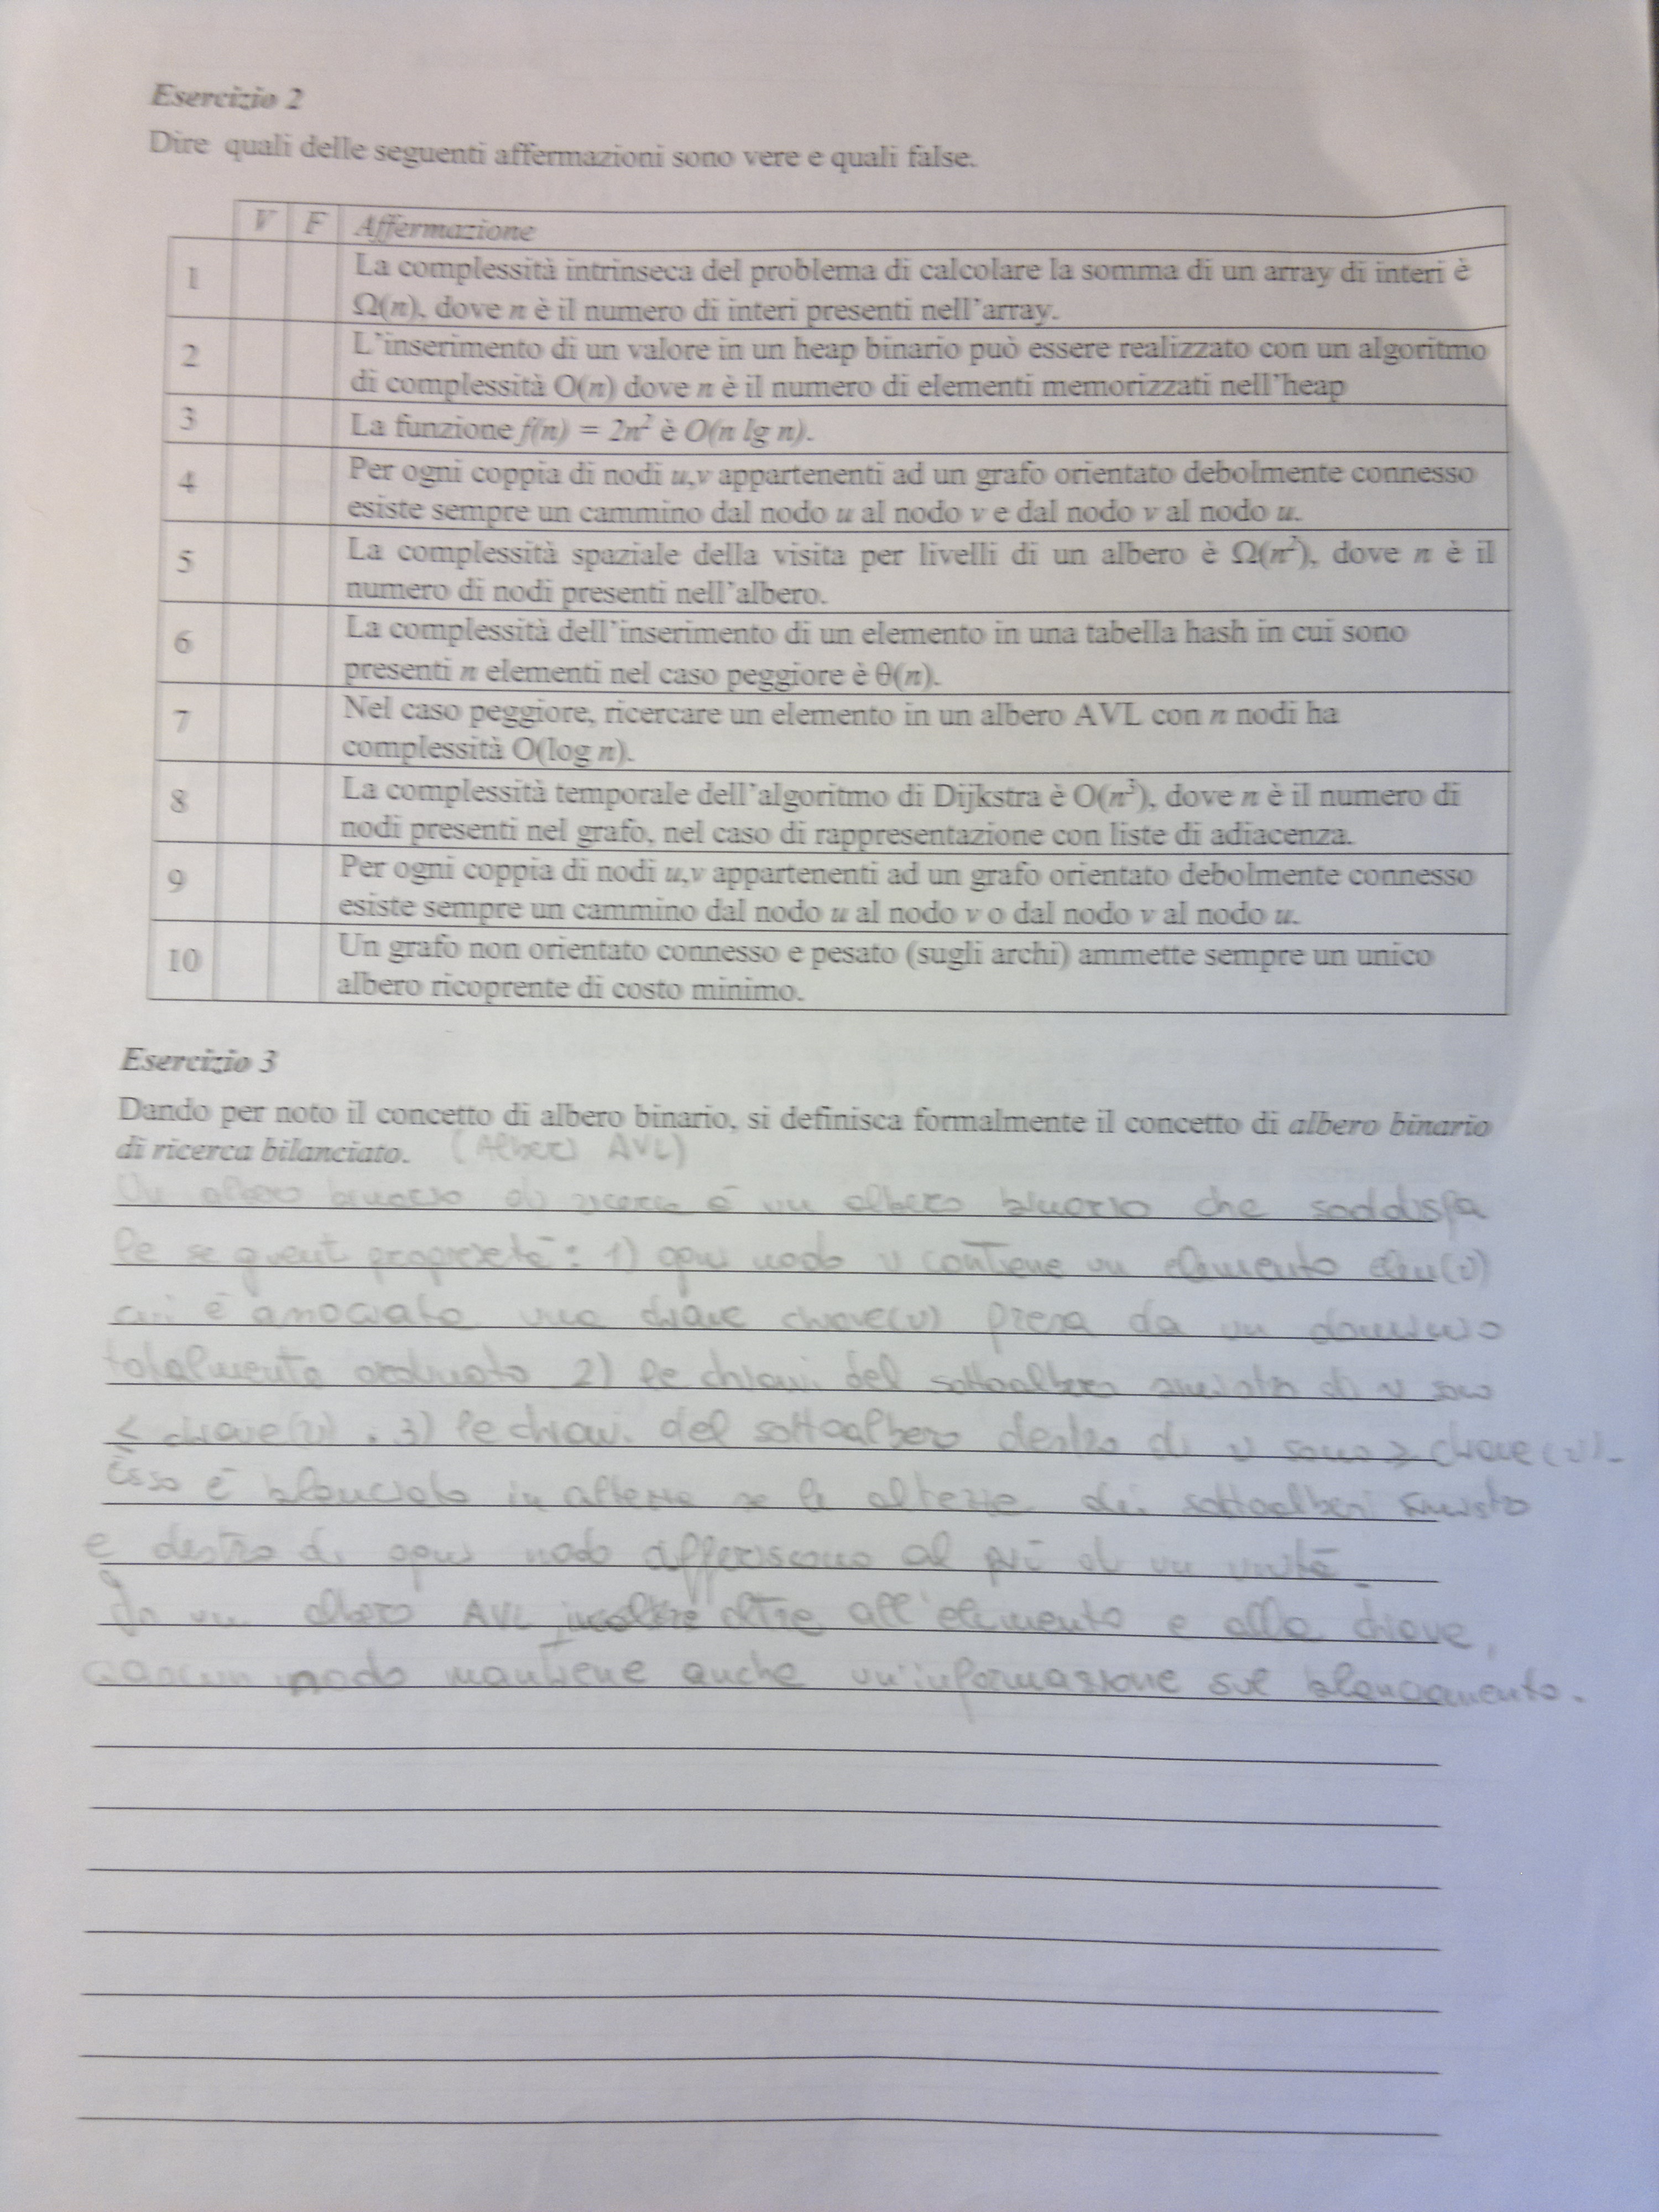 Esercizio 2
Dire quali delle seguenti affermazioni sono vere e quali false.
V F Affermazione
1 La complessità intrinseca del problema di calcolare la somma di un array di interi è
Ω(n), dove n è il numero di interi presenti nell'array.
2 L'inserimento di un valore in un heap binario può essere realizzato con un algoritmo
di complessità O(n) dove n è il numero di elementi memorizzati nell'heap
3 La funzione f(n) = 2n² è O(n lg n).
4 Per ogni coppia di nodi u,v appartenenti ad un grafo orientato debolmente connesso
esiste sempre un cammino dal nodo u al nodo v e dal nodo v al nodo u.
5 La complessità spaziale della visita per livelli di un albero è Ω(n²), dove n è il
numero di nodi presenti nell'albero.
6 La complessità dell'inserimento di un elemento in una tabella hash in cui sono
presenti n elementi nel caso peggiore è θ(n).
7 Nel caso peggiore, ricercare un elemento in un albero AVL con n nodi ha
complessità O(log n).
8 La complessità temporale dell'algoritmo di Dijkstra è O(n³), dove n è il numero di
nodi presenti nel grafo, nel caso di rappresentazione con liste di adiacenza.
9 Per ogni coppia di nodi u,v appartenenti ad un grafo orientato debolmente connesso
esiste sempre un cammino dal nodo u al nodo v o dal nodo v al nodo u.
10 Un grafo non orientato connesso e pesato (sugli archi) ammette sempre un unico
albero ricoprente di costo minimo.
Esercizio 3
Dando per noto il concetto di albero binario, si definisca formalmente il concetto di albero binario
di ricerca bilanciato. (Alberi AVL)
Un albero binario di ricerca è un albero binario che soddisfa
le seguenti proprietà: 1) ogni nodo v contiene un elemento elem(v)
cui è associata una chiave chiave(v) presa da un dominio
totalmente ordinato 2) le chiavi del sottoalbero sinistro di v sono
≤ chiave(v). 3) le chiavi del sottoalbero destro di v sono ≥ chiave(v).
Esso è bilanciato in altezza se le altezze dei sottoalberi sinistro
e destro di ogni nodo differiscono al più di un unità.
In un albero AVL, inoltre oltre all'elemento e alla chiave,
ciascun nodo mantiene anche un'informazione sul bilanciamento.